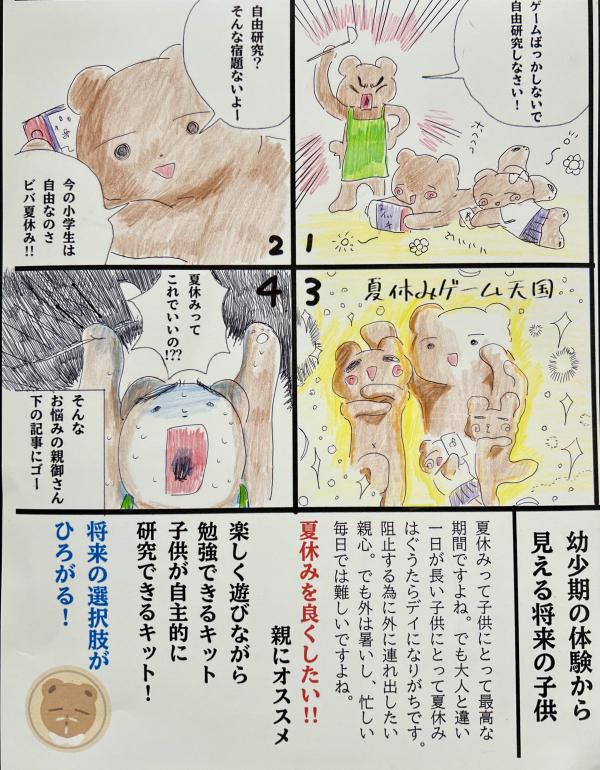 1
ゲームばっかしないで
自由研究しなさい！
2
自由研究？
そんな宿題ないよー
今の小学生は
自由なのさ
ビバ夏休み!!
3
夏休みゲーム天国
4
夏休みって
これでいいの
!??
そんな
お悩みの親御さん
下の記事にゴー
幼少期の体験から
見える将来の子供
夏休みって子供にとって最高な
期間ですよね。でも大人と違い
一日が長い子供にとって夏休み
はぐうたらデイになりがちです。
阻止する為に外に連れ出したい
親心。でも外は暑いし、忙しい
毎日では難しいですよね。
夏休みを良くしたい!!
親にオススメ
楽しく遊びながら
勉強できるキット
子供が自主的に
研究できるキット！
将来の選択肢が
ひろがる！